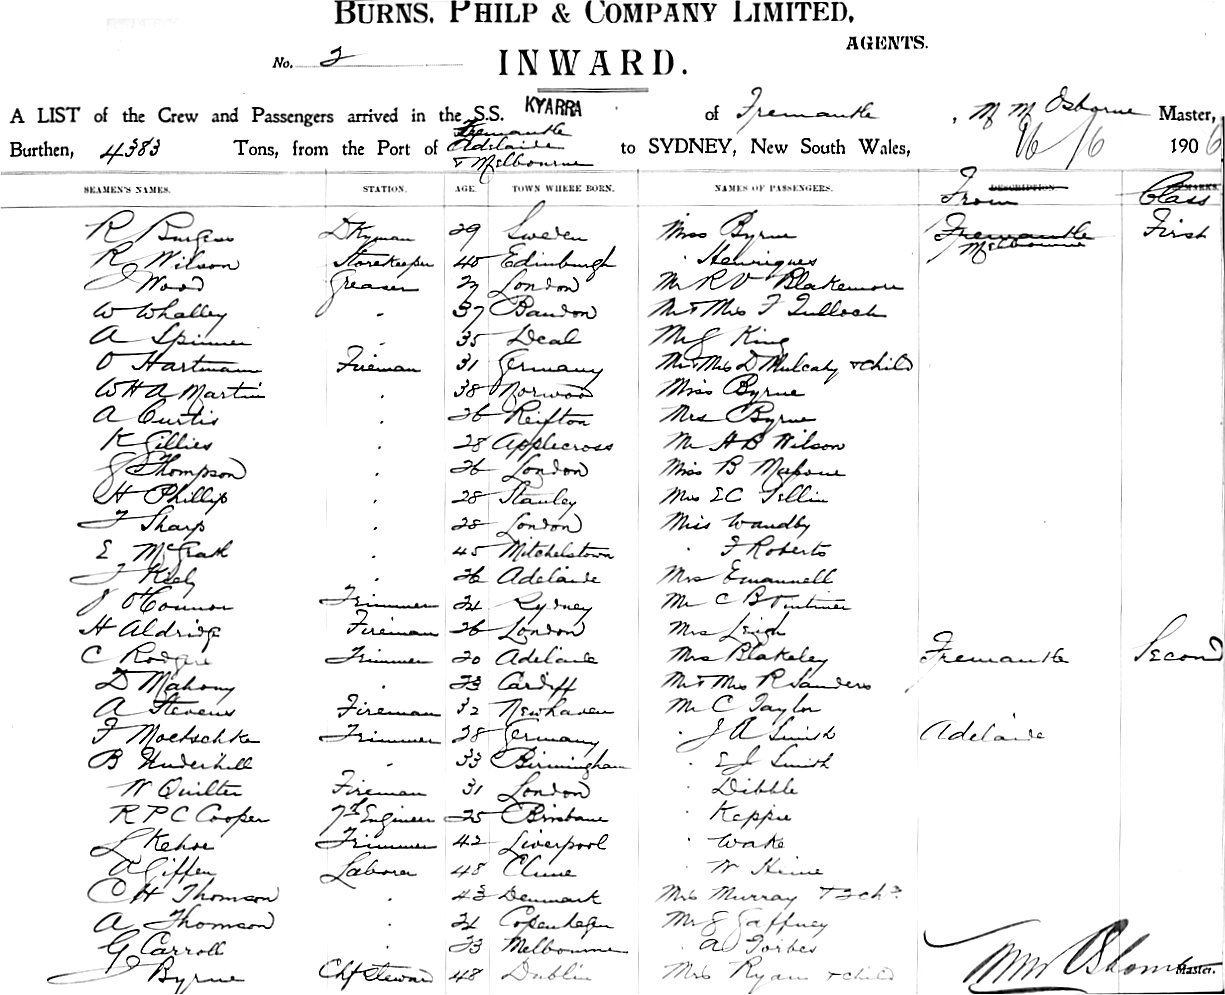 BURNS, PHILP & COMPANY LIMITED,
AGENTS.
No. 2
INWARD.
A LIST of the Crew and Passengers arrived in the S.S. KYARRA of Fremantle, M M Osborne Master,
Burthen, 4383 Tons, from the Port of Fremantle Adelaide & Melbourne to SYDNEY, New South Wales, 16/6 1906
SEAMEN'S NAMES. STATION. AGE. TOWN WHERE BORN. NAMES OF PASSENGERS. DESCRIPTION From REMARKS. Class
R Burgess DKyman 29 Sweden Miss Byrne Fremantle Melbourne First
R Wilson Storekeeper 40 Edinburgh " Henriques
J Wood Greaser 27 London Mr R V Blakemore
W Whalley " 37 Bandon Mr & Mrs F Tulloch
A Spinner 35 Deal Mr J King
O Hartmann Fireman 31 Germany Mr & Mrs D Mulcahy & child
W H A Martin " 38 Norwood Miss Byrne
A Curtis " 26 Reifton Mrs Byrne
K Gillies " 28 Applecross Mr H B Wilson
J Thompson " 26 London Miss B Malone
H Phillips " 28 Stanley Mrs E C Tellin
F Sharp " 28 London Miss Wandby
E McGrath " 45 Mitchelstown " F Roberts
J Kiely " 26 Adelaide Mrs Emannell
J O'Connor Trimmer 24 Sydney Mr C B
H Aldridge Fireman 26 London Mrs Leigh
C Rodgie Trimmer 20 Adelaide Mrs Blakeley Fremantle Second
D Mahony " 23 Cardiff Mr & Mrs R Sanders
A Stevens Fireman 32 Newhaven Mr C Taylor
F Moetschke Trimmer 28 Germany " J A Smith Adelaide
B Underhill " 33 Birmingham " E J Smith
W Quilter Fireman 31 London " Dibble
R P C Cooper 7th Engineer 25 Brisbane " Keppie
L Kehoe Trimmer 42 Liverpool " Wake
A Giffen Laborer 48 Clune " W Hine
C H Thomson " 43 Denmark Mrs Murray & 2 chn
A Thomson " 24 Copenhagen Mr J Gaffney
G Carroll " 23 Melbourne " A Forbes
J Byrne Chf Steward 48 Dublin Mrs Ryan & child M M Osborne Master.